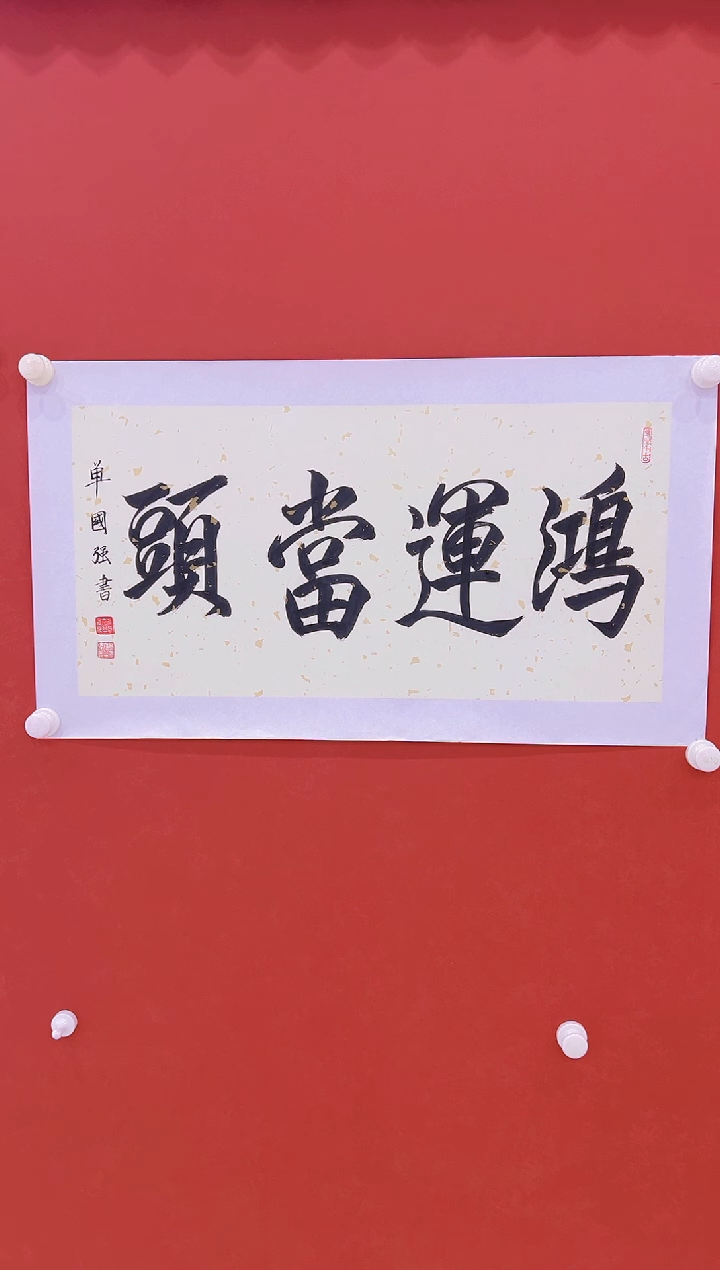 鴻運當頭
单國强書